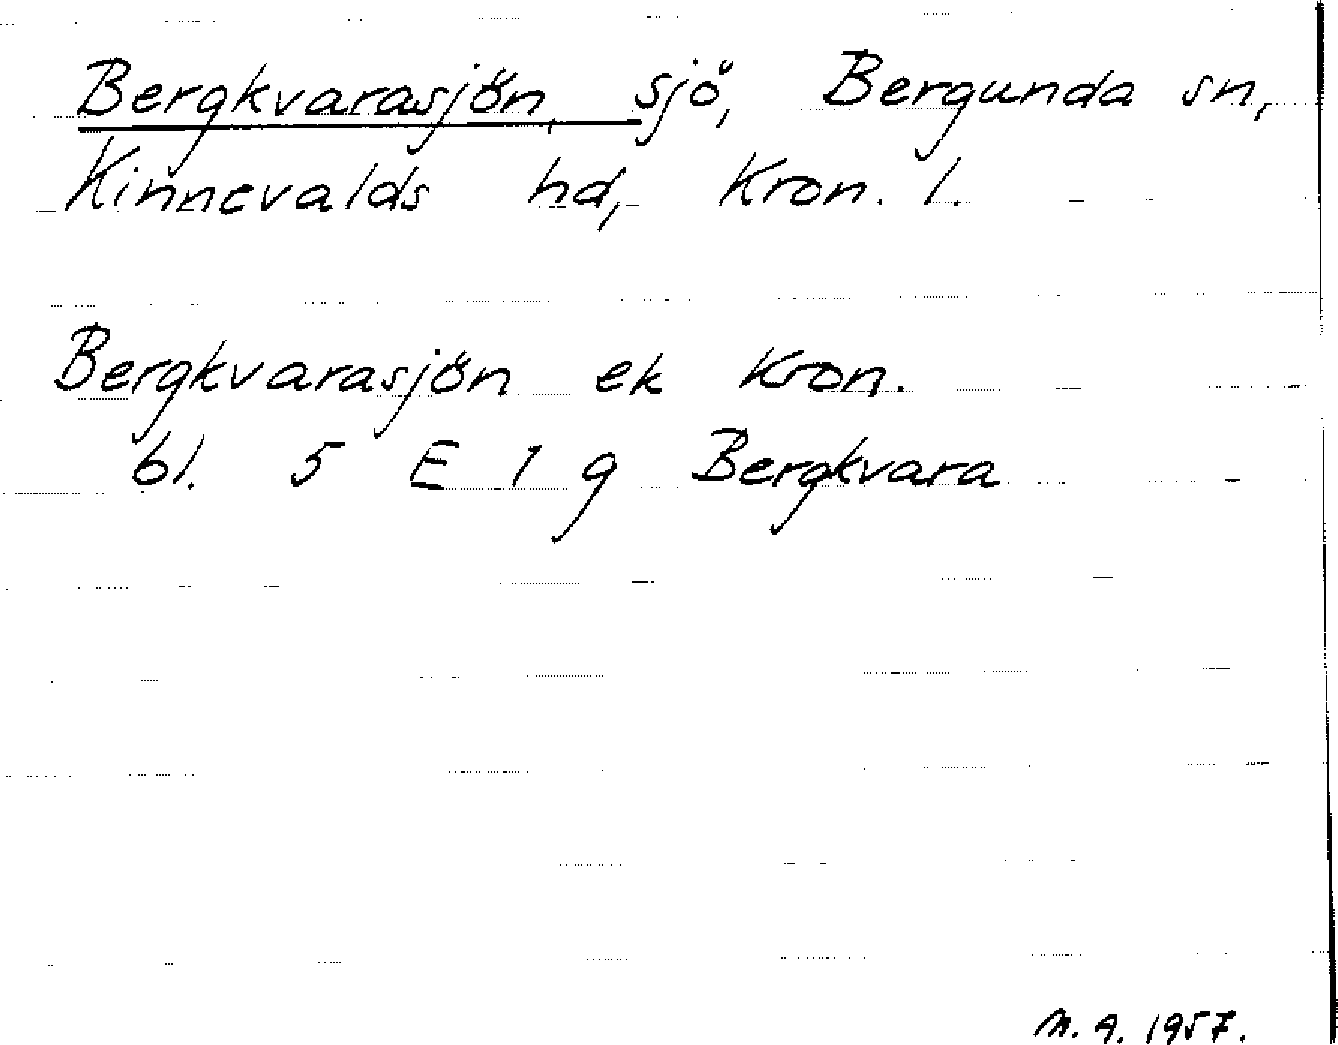 Bergkvarasjön, sjö, Bergunda sn,
Kinnevalds hd, Kron. l.
Bergkvarasjön ek Kron.
bl. 5 E 1 g Bergkvara
N. A. 1957.